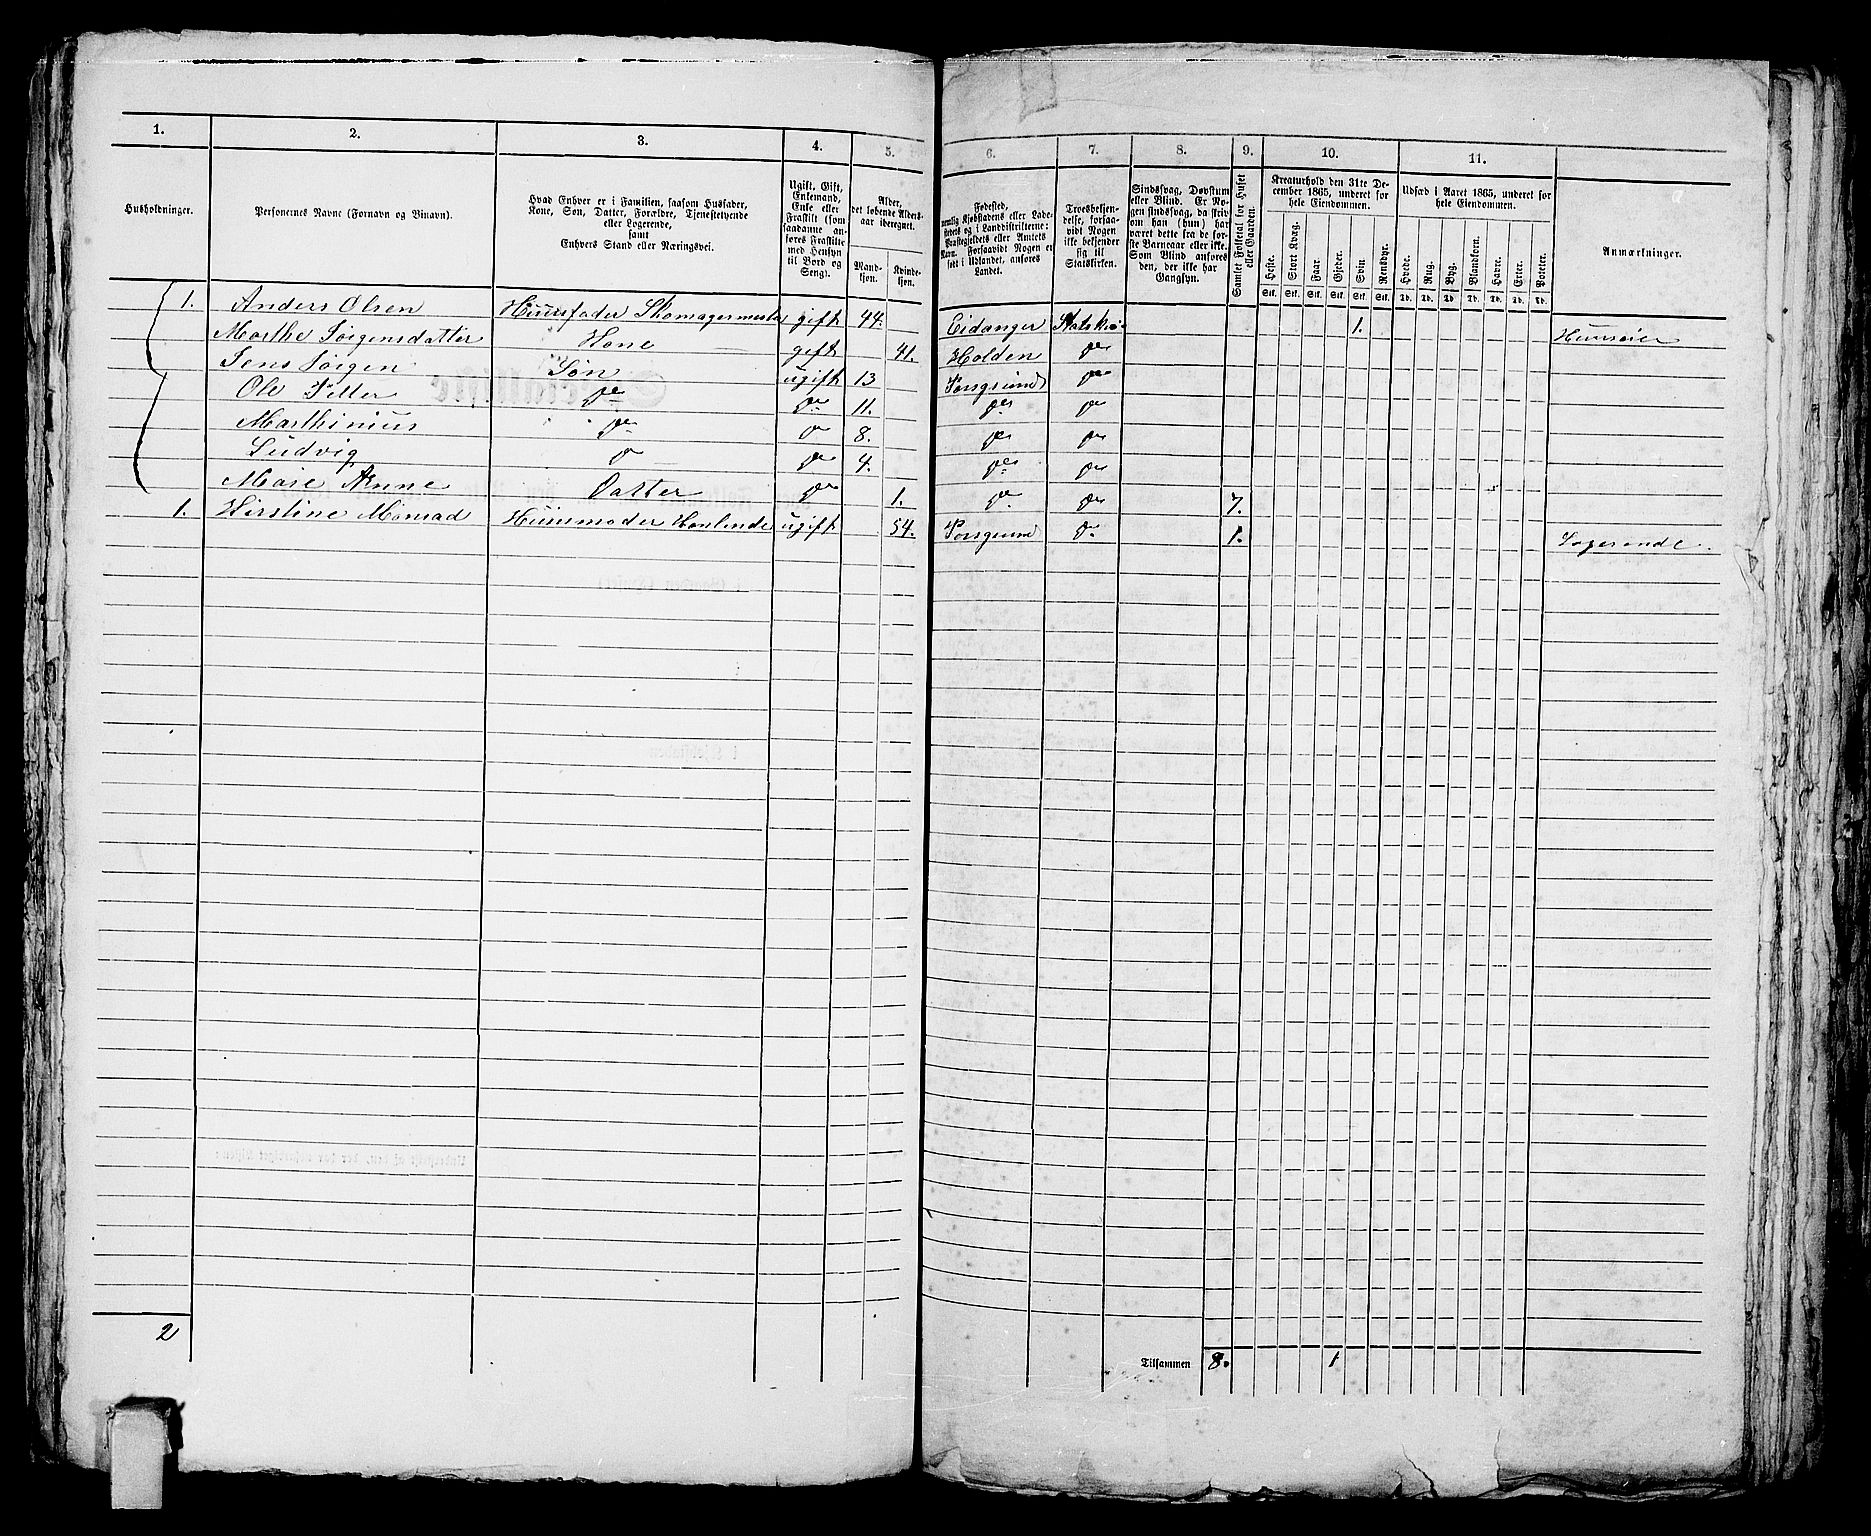 1.
2.
3.
4.
5.
6.
7.
8.
9.
10.
11.
Husholdninger.
Personernes Navne (Fornavn og Binavn).
Hvad Enhver er i Familien, saasom Husfader,
Kone, Søn, Datter, Forældre, Tjenestetyende
eller Logerende,
samt
Enhvers Stand eller Næringsvei.
Ugift, Gift,
Enkemand,
Enke eller
Fraskilt (som
saadanne an-
føres Fraskilte
med Hensyn
til Bord og
Seng).
Alder,
det løbende Alders-
aar iberegnet.
Mand-
kjøn.
Kvinde-
kjøn.
Fødested,
nemlig Kjøbstadens eller Lade-
stedets og i Landdistrikterne:
Præstegjeldets eller Amtets
Navn. Forsaavidt Nogen er
født i Udlandet, anføres
Landet.
Troesbekjen-
delse, forsaa-
vidt Nogen
ikke bekjender
sig til
Statskirken.
Sindssvag, Døvstum
eller Blind. Er No-
gen sindssvag, da skriv
om han (hun) har
været dette fra de før-
ste Barneaar eller ikke.
Som Blind anføres
den, der ikke har
Gangsyn.
Samlet Folketal for Huset
eller Gaarden.
Kreaturhold den 31te De-
cember 1865, underet for
hele Eiendommen.
Heste.
Stort Kvæg.
Faar.
Gjeder.
Svin.
Rensdyr.
Stk. Stk. Stk. Stk. Stk. Stk.
Udsæd i Aaret 1865, underet for
hele Eiendommen.
Hvede.
Rug.
Byg.
Blandkorn.
Havre.
Erter.
Poteter.
Td. Td. Td. Td. Td. Td. Td.
Anmærkninger.
1. Anders Olsen Huusfader Skomagermester gift 44. Eidanger Statskir 1. Huuseier
Marthe Jørgensdatter Kone gift 41. Holden do
Jens Jørgen Søn ugift 13 Porsgrund do
Ole Petter do do 11. do do
Marthinius do do 8. do do
Ludvig do do 4. do do
Marie Anne Datter do 1. do do 7.
1. Kirstine Monrad Huusmoder ugift 54. Porsgrund do 1. Logerende.
2
Tilsammen 8. 1